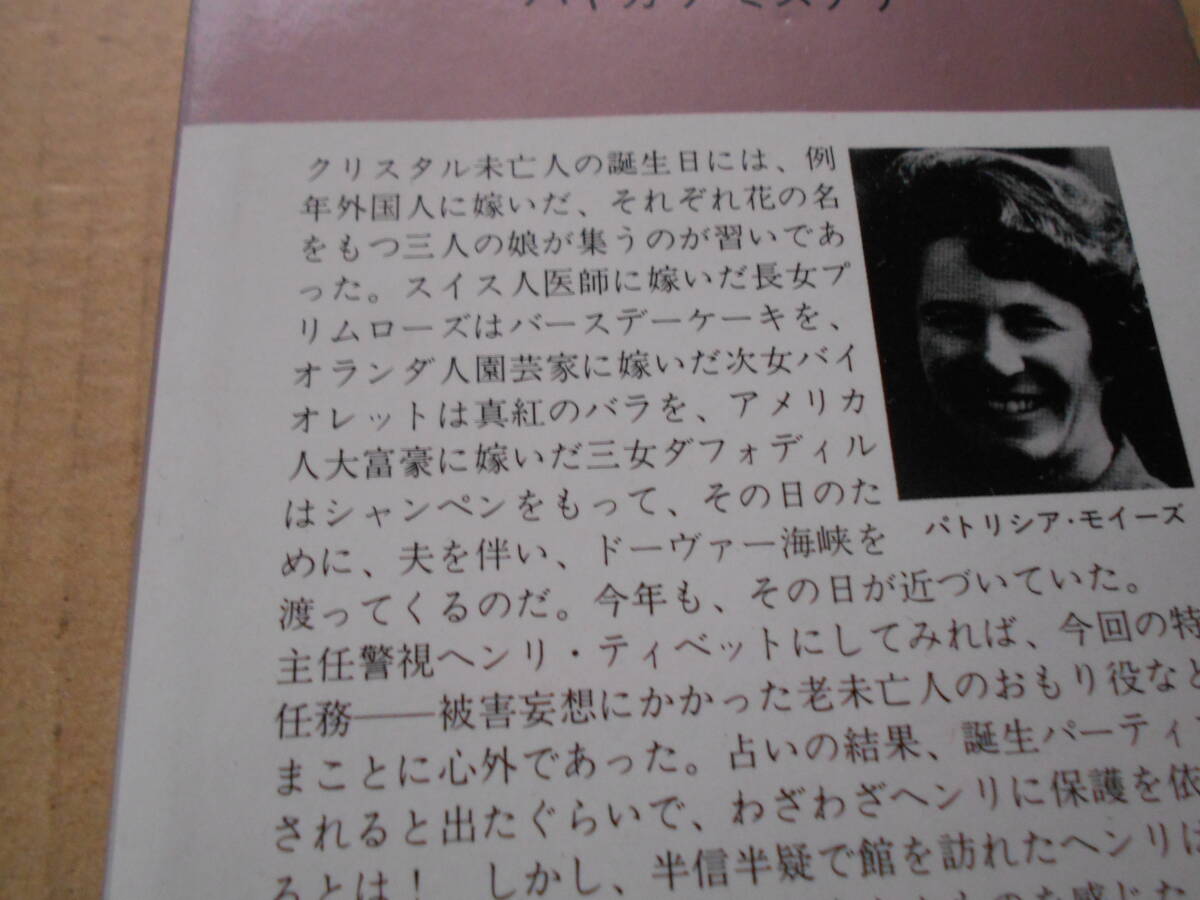 ハヤカワ・ミステリ
クリスタル未亡人の誕生日には、例
年外国人に嫁いだ、それぞれ花の名
をもつ三人の娘が集うのが習いであ
った。スイス人医師に嫁いだ長女プ
リムローズはバースデーケーキを、
オランダ人園芸家に嫁いだ次女バイ
オレットは真紅のバラを、アメリカ
人大富豪に嫁いだ三女ダフォディル
はシャンペンをもって、その日のた
めに、夫を伴い、ドーヴァー海峡を
渡ってくるのだ。今年も、その日が近づいていた。
パトリシア・モイーズ
主任警視ヘンリ・ティベットにしてみれば、今回の特
任務——被害妄想にかかった老未亡人のおもり役など
まことに心外であった。占いの結果、誕生パーティ
されると出たぐらいで、わざわざヘンリに保護を依
るとは！　しかし、半信半疑で館を訪れたヘンリは
のを感じた